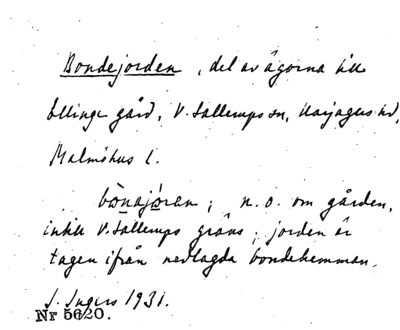 Bondejorden, del av ägorna till
Ellinge gård, V. Sallerups sn, Harjagers hd,
Malmöhus l.
bònajóran; n.o. om gården,
intill V. Sallerups gräns; jorden är
tagen ifrån nedlagda bondehemman.
I. Ingers 1931.
Nr 5620.